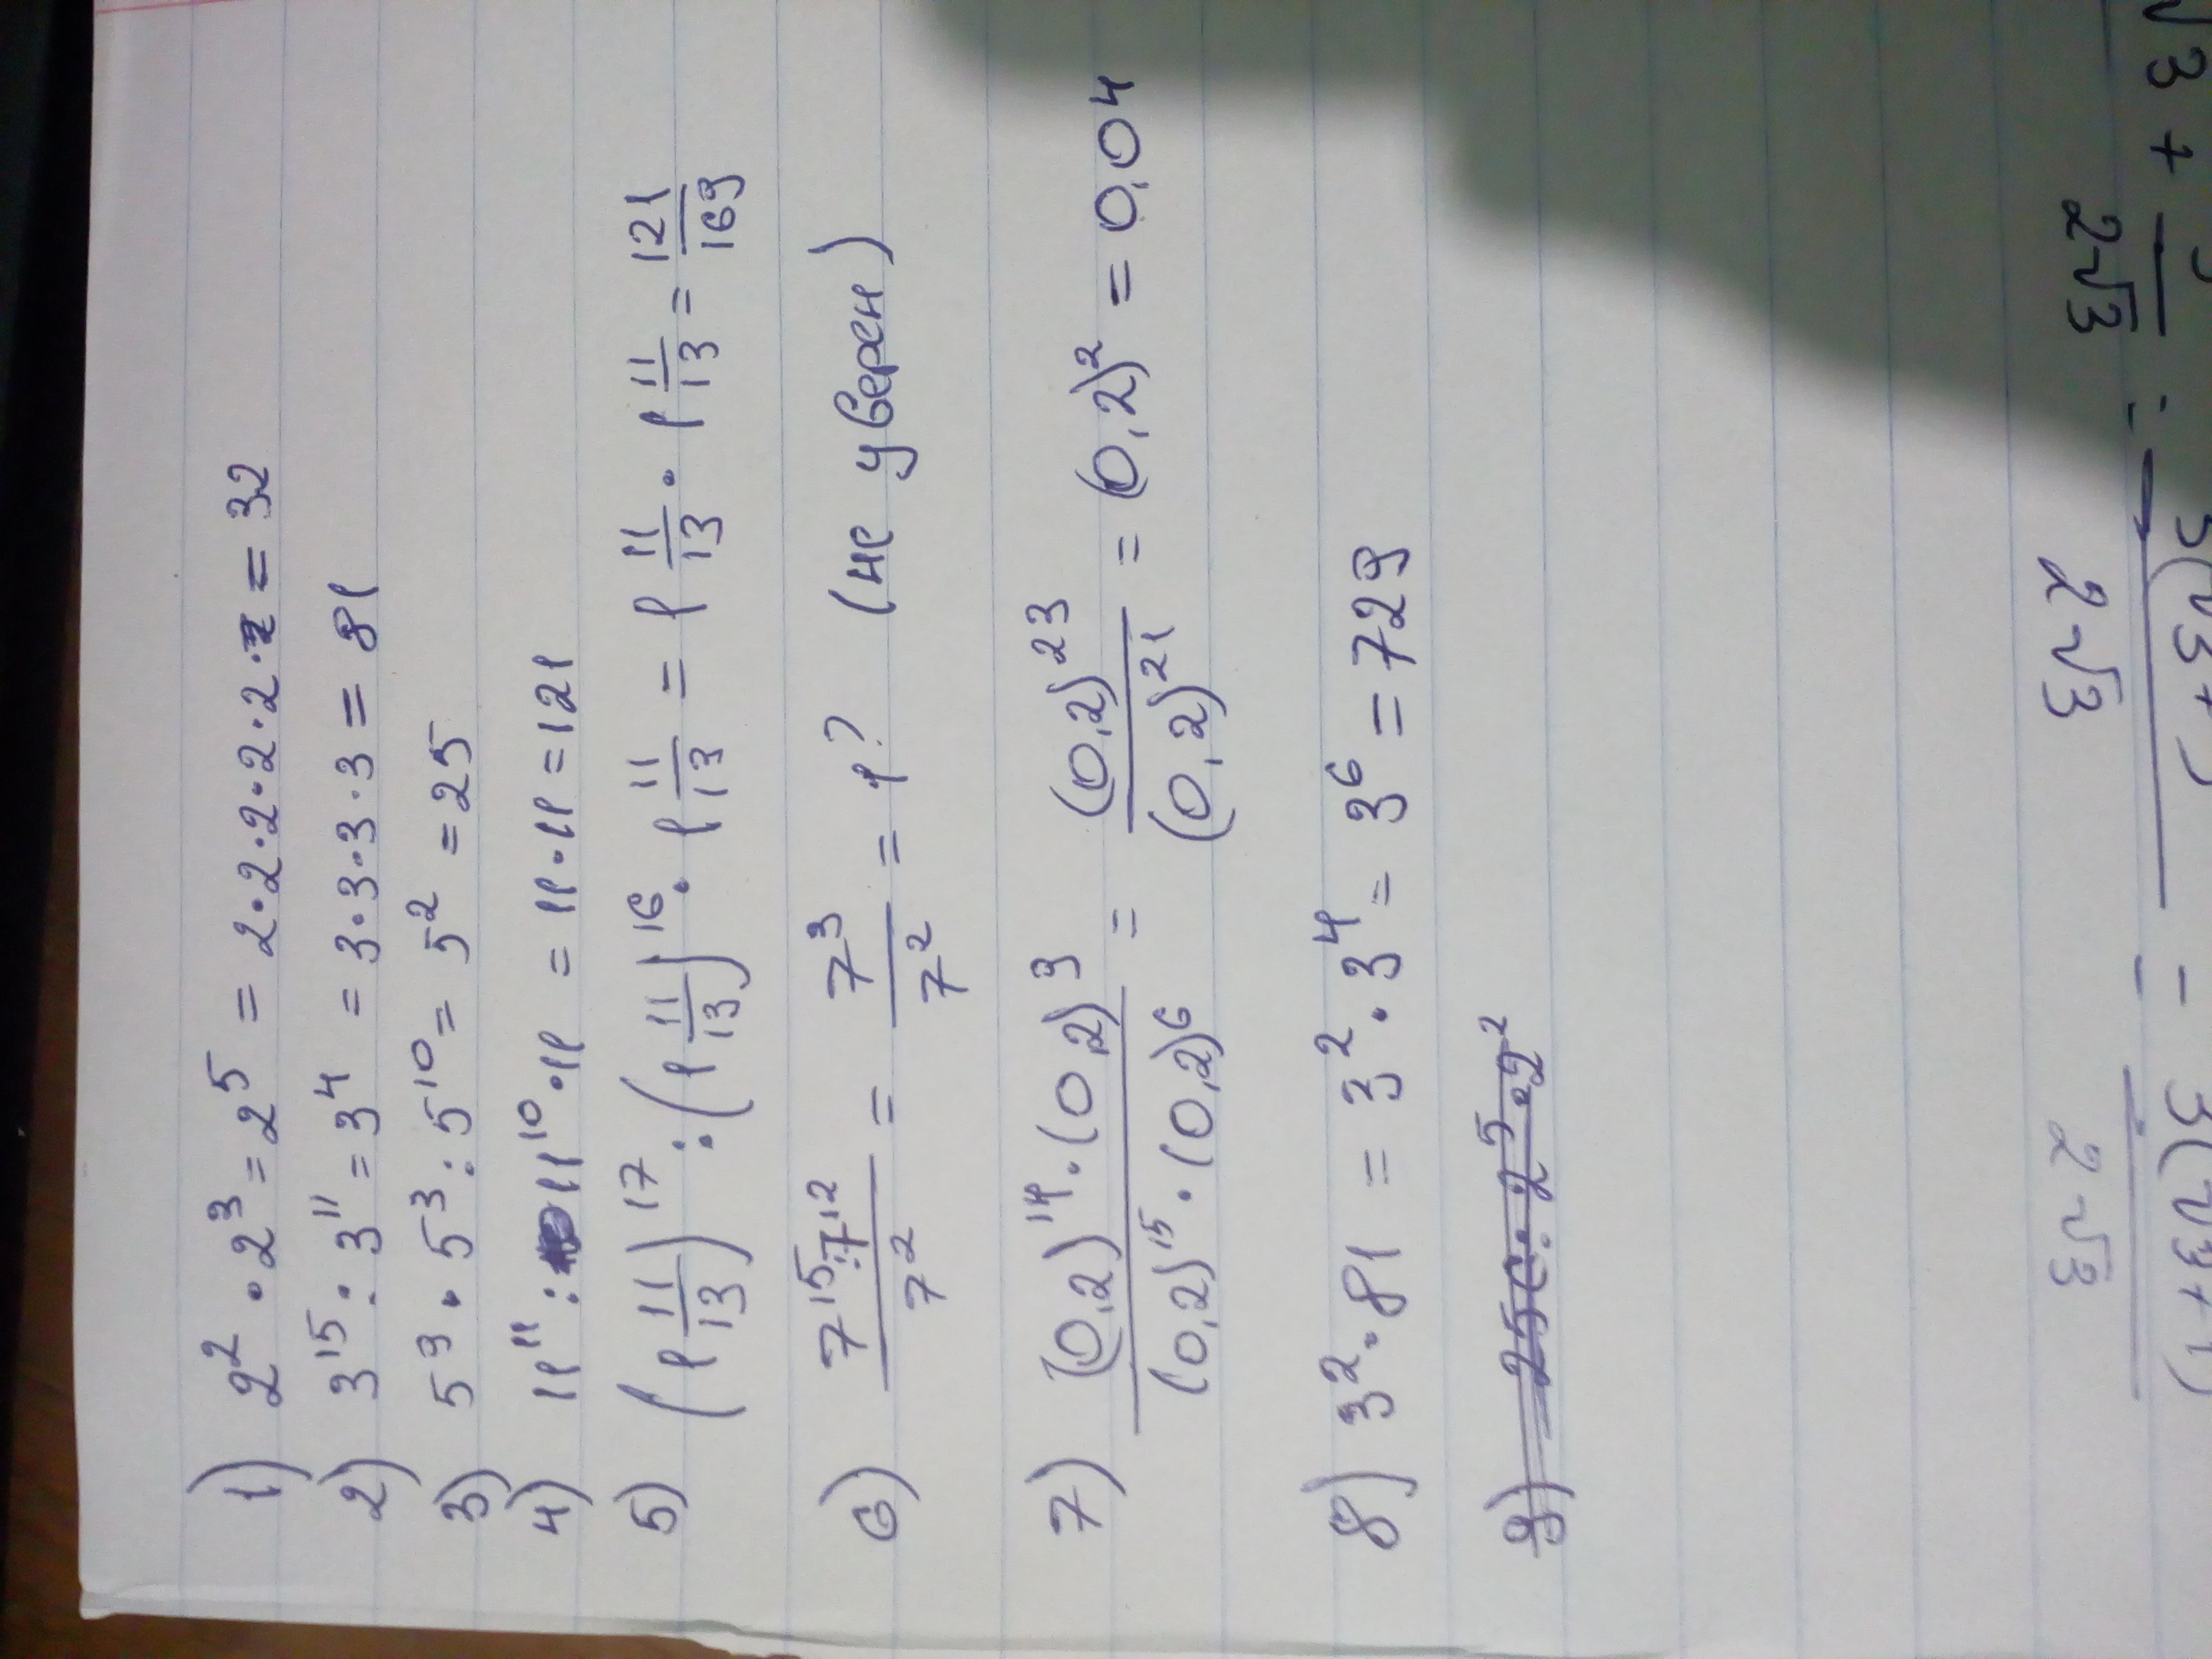 1) 2² · 2³ = 2⁵ = 2·2·2·2·2 = 32
2) 3¹⁵ : 3¹¹ = 3⁴ = 3·3·3·3 = 81
3) 5⁹ · 5³ : 5¹⁰ = 5² = 25
4) 11¹¹ : 11¹⁰ · 11 = 11·11 = 121
5) (1 11/13)¹⁷ : (1 11/13)¹⁶ · 1 11/13 = 1 11/13 · 1 11/13 = 121/169
6) 7¹⁵:7¹²/7² = 7³/7² = 1? (не уверен)
7) (0,2)¹⁴ · (0,2)³/(0,2)¹⁵ · (0,2)⁶ = (0,2)²³/(0,2)²¹ = (0,2)² = 0,04
8) 3² · 81 = 3² · 3⁴ = 3⁶ = 729
9)